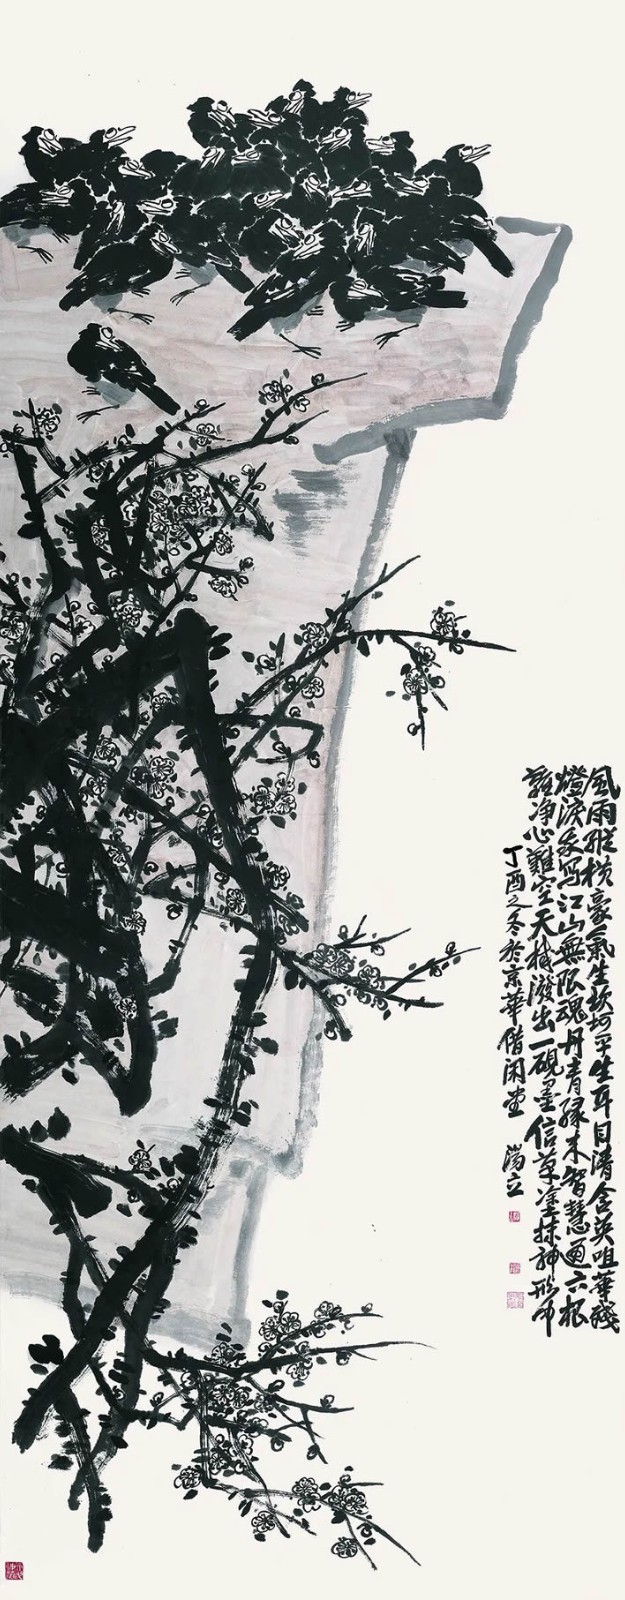 風雨縱橫豪氣生坎坷平生耳目清含英咀華殘
燈淚寫江山無限魂丹青緣智慧通六根
難淨心難空天機潑出一硯墨信筆塗抹神形中
丁酉之冬於京華閑堂 湯立